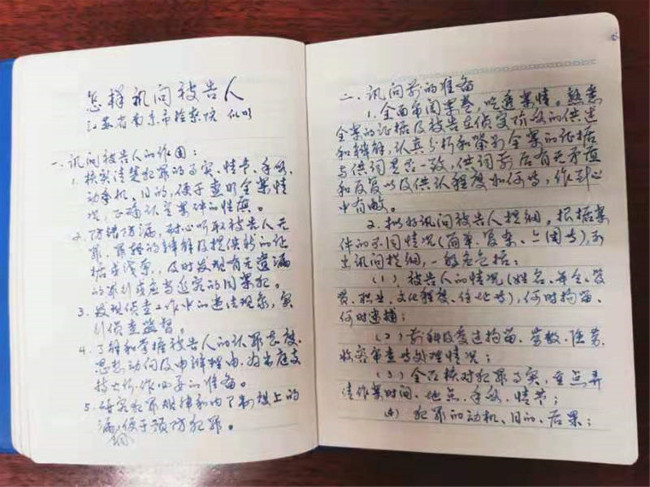 怎样讯问被告人
江苏省南京市检察院
一、讯问被告人的作用：
1、核实清楚犯罪的事实、情节、手段、
动机、目的，便于查明全案情
况，正确认定案件的性质。
2、防错防漏，耐心听取被告人无
罪、罪轻的辩解及提供新的证
据和线索，及时发现有无遗漏
的罪行和应当追究的同案犯。
3、发现侦查工作中的违法现象，实
行侦查监督。
4、了解和掌握被告人的认罪态度、
思想动向及申辩理由，为出庭支
持公诉，作必要的准备。
5、研究犯罪规律和内部制度上的
漏洞，便于预防犯罪。
二、讯问前的准备
1、全面审阅案卷，吃透案情。熟悉
全案的证据及被告在侦查阶段的供述
和辩解，认真分析和鉴别全案的证据
与供词是否一致，供词前后有无矛盾
和反复以及供认程度如何等，作到心
中有数。
2、拟好讯问被告人提纲，根据案
件的不同情况（简单、复杂、公图等），列
出讯问提纲，一般应包括：
（1）被告人的情况（姓名、年令、
职业、文化程度、住址等），何时拘留、
何时逮捕；
（2）前科及受过拘留、劳教、
收容审查等处理情况；
（3）全面核对犯罪事实，重点弄
清作案时间、地点、手段、情节；
（4）犯罪的动机、目的、后果；